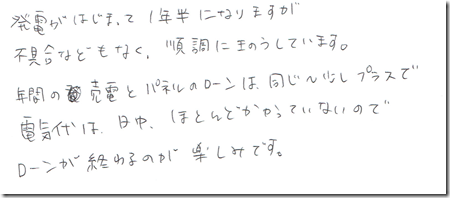 発電がはじまって1年半になりますが
不具合などもなく、順調にきのうしています。
年間の売電とパネルのローンは、同じ〜少しプラスで
電気代は、日中、ほとんどかかっていないので
ローンが終わるのが楽しみです。